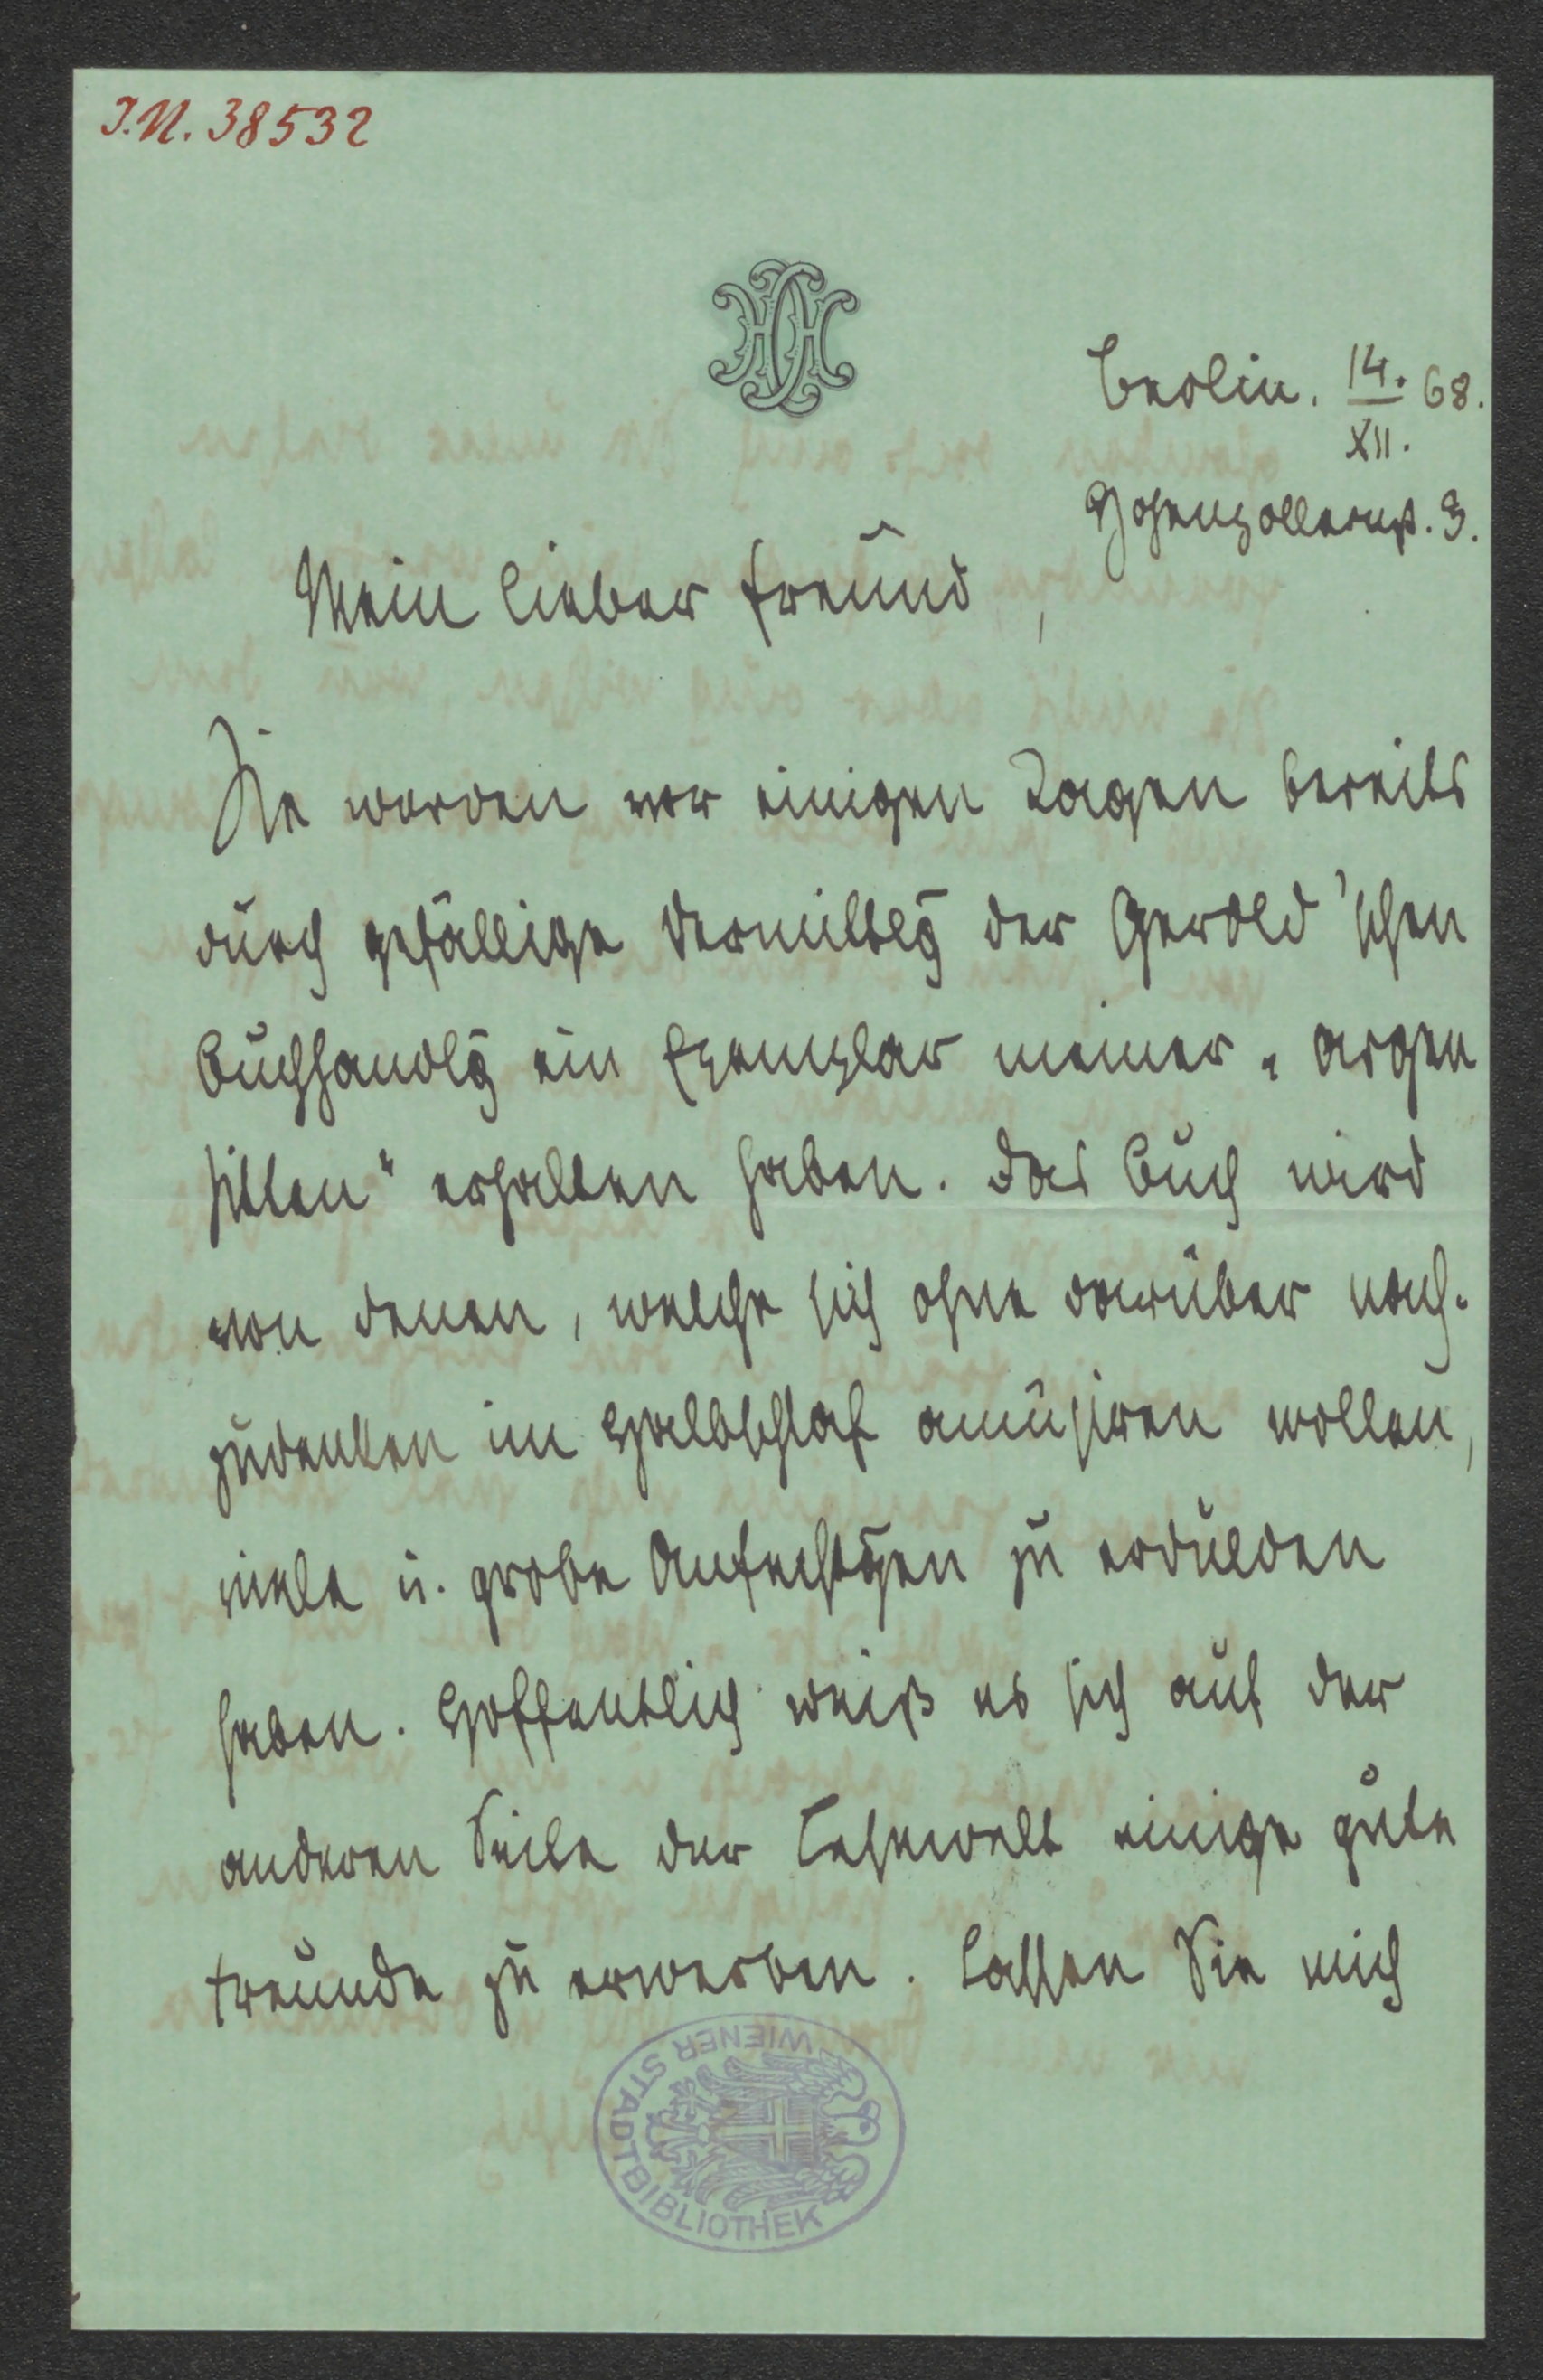 J.N. 38532
Berlin. 14./XII. 68.
Hohenzollernst. 3.
Mein lieber Freund,
Sie werden vor einigen Tagen bereits
durch gefällige Vermittlg der Gerold'schen
Buchhandlg ein Exemplar meiner „argen
Sitten“ erhalten haben. Das Buch wird
von denen, welche sich ohne darüber nach-
zudenken im Halbschlaf amüsiren wollen,
viele u. grobe Anfechtgen zu erdulden
haben. Hoffentlich weiß es sich auf der
anderen Seite der Lesewelt einige gute
Freunde zu erwerben. Lassen Sie mich
WIENER STADTBIBLIOTHEK